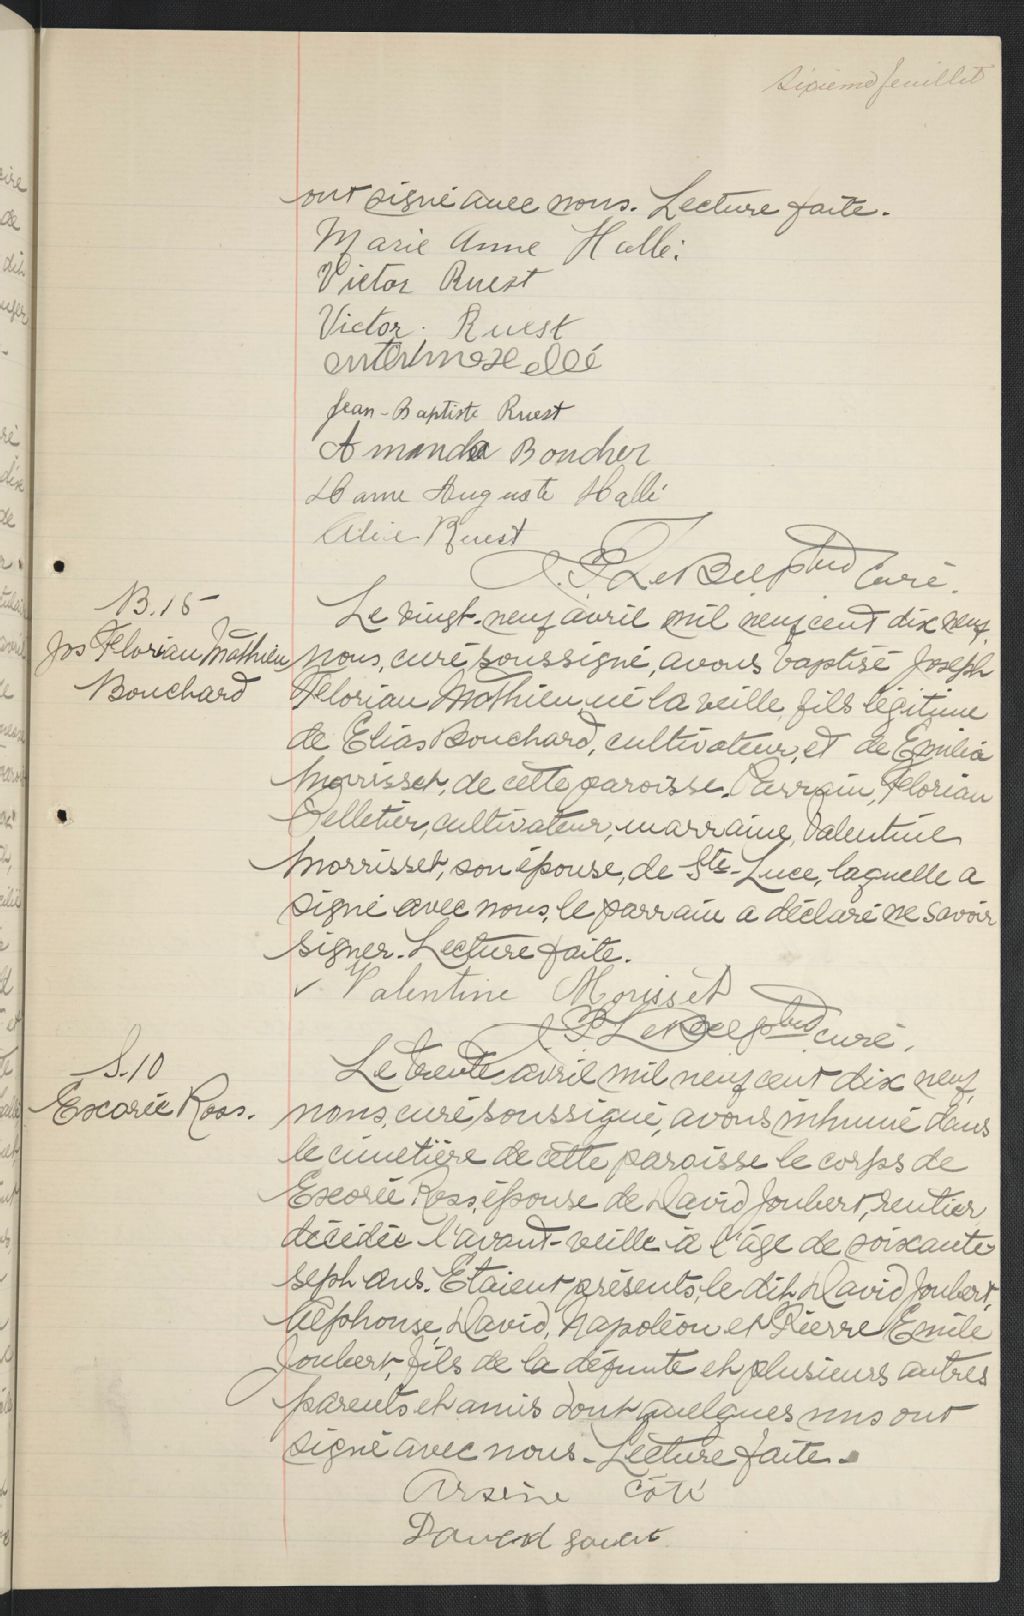 Sixième feuillet
ont signé avec nous. Lecture faite.
Marie Anne Hallé
Victor Ruest
Victor. Ruest
Jean-Baptiste Ruest
Amanda Boucher
Dame Auguste Hallé
Alice Ruest
Curé.
B.15
Jos Florian Mathieu
Bouchard
Le vingt-neuf avril mil neuf cent dix neuf,
nous, curé soussigné, avons baptisé Joseph
Florian Mathieu, né la veille, fils légitime
de Elias Bouchard, cultivateur, et de Emilia
Morrisset, de cette paroisse. Parrain, Florian
Pelletier, cultivateur, marraine, Valentine
Morrisset, son épouse, de Ste-Luce, laquelle a
signé avec nous, le parrain a déclaré ne savoir
signer. Lecture faite.
Valentine Morisset
curé.
S.10
Exorée Ross.
Le trente avril mil neuf cent dix neuf,
nous, curé soussigné, avons inhumé dans
le cimetière de cette paroisse le corps de
Exorée Ross, épouse de David Joubert, rentier
décédée l'avant-veille à l'âge de soixante
sept ans. Etaient présents, le dit David Joubert,
Alphonse, David, Napoléon et Pierre Emile
Joubert, fils de la défunte et plusieurs autres
parents et amis dont quelques uns ont
signé avec nous. Lecture faite.
Arsène Côté